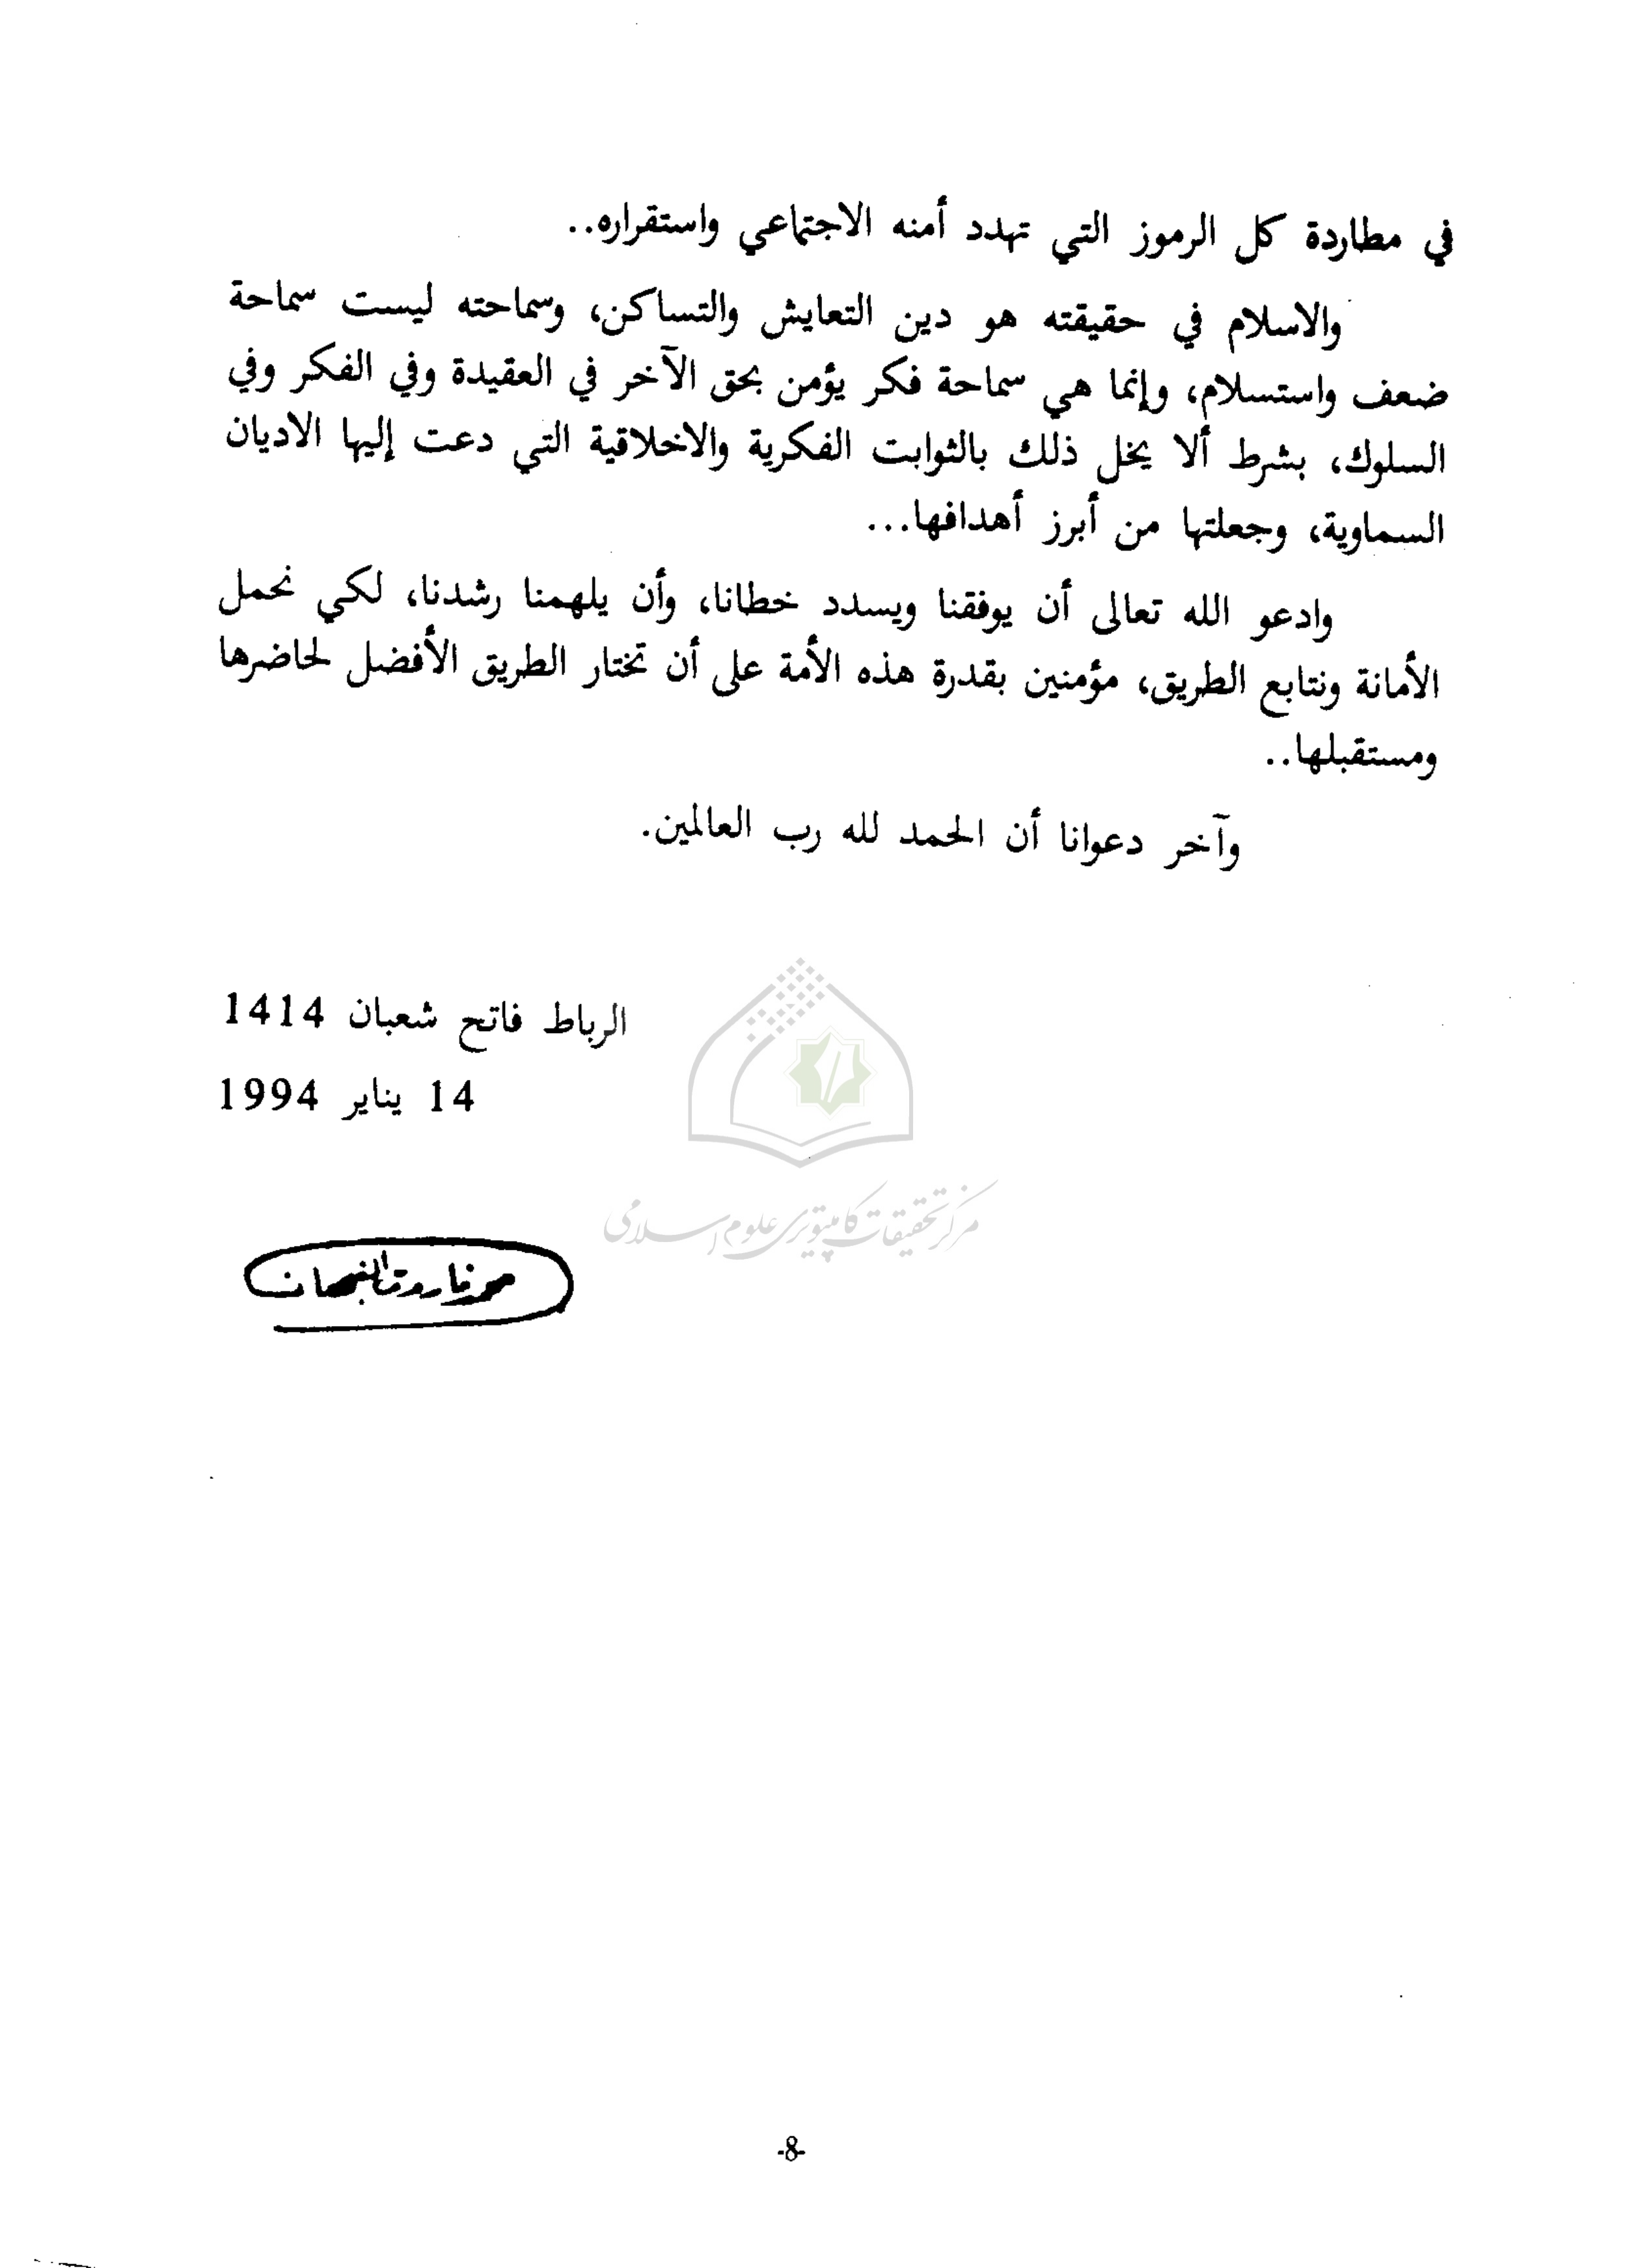 في مطاردة كل الرموز التي تهدد أمنه الاجتماعي واستقراره..
والاسلام في حقيقته هو دين التعايش والتساكن، وسماحته ليست سماحة
ضعف واستسلام، وإنما هي سماحة فكر يؤمن بحق الآخر في العقيدة وفي الفكر وفي
السلوك، بشرط ألا يخل ذلك بالثوابت الفكرية والاخلاقية التي دعت إليها الاديان
السماوية، وجعلتها من أبرز أهدافها...
وادعو الله تعالى أن يوفقنا ويسدد خطانا، وأن يلهمنا رشدنا، لكي نحمل
الأمانة ونتابع الطريق، مؤمنين بقدرة هذه الأمة على أن تختار الطريق الأفضل لحاضرها
ومستقبلها..
وآخر دعوانا أن الحمد لله رب العالمين.
الرباط فاتح شعبان 1414
14 يناير 1994
مرکز تحقیقات کامپیوتری علوم اسلامی
محمد فاروق النبهان
-8-